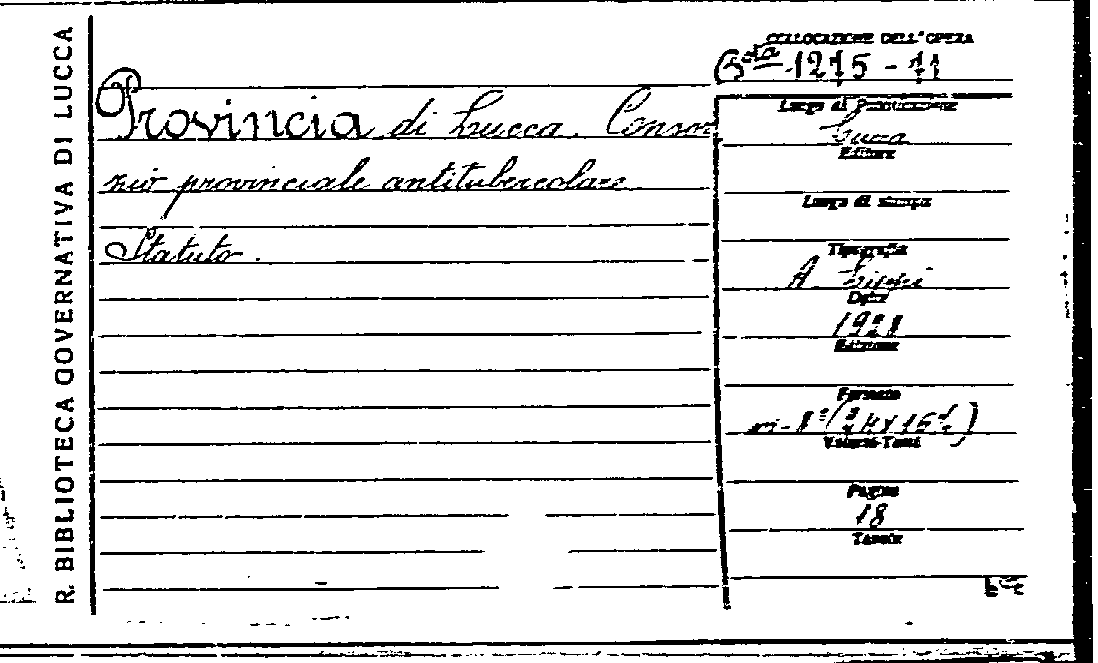 R. BIBLIOTECA GOVERNATIVA DI LUCCA
COLLOCAZIONE DELL'OPERA
Bta 1215 - 11
Provincia di Lucca. Consor
zio provinciale antitubercolare
Statuto.
Luogo di Pubblicazione
Lucca
Editore
Luogo di stampa
Tipografia
A. Lippi
Data
1928
Edizione
Formato
in-8°
Volumi-Tomi
Pagine
18
Tavole